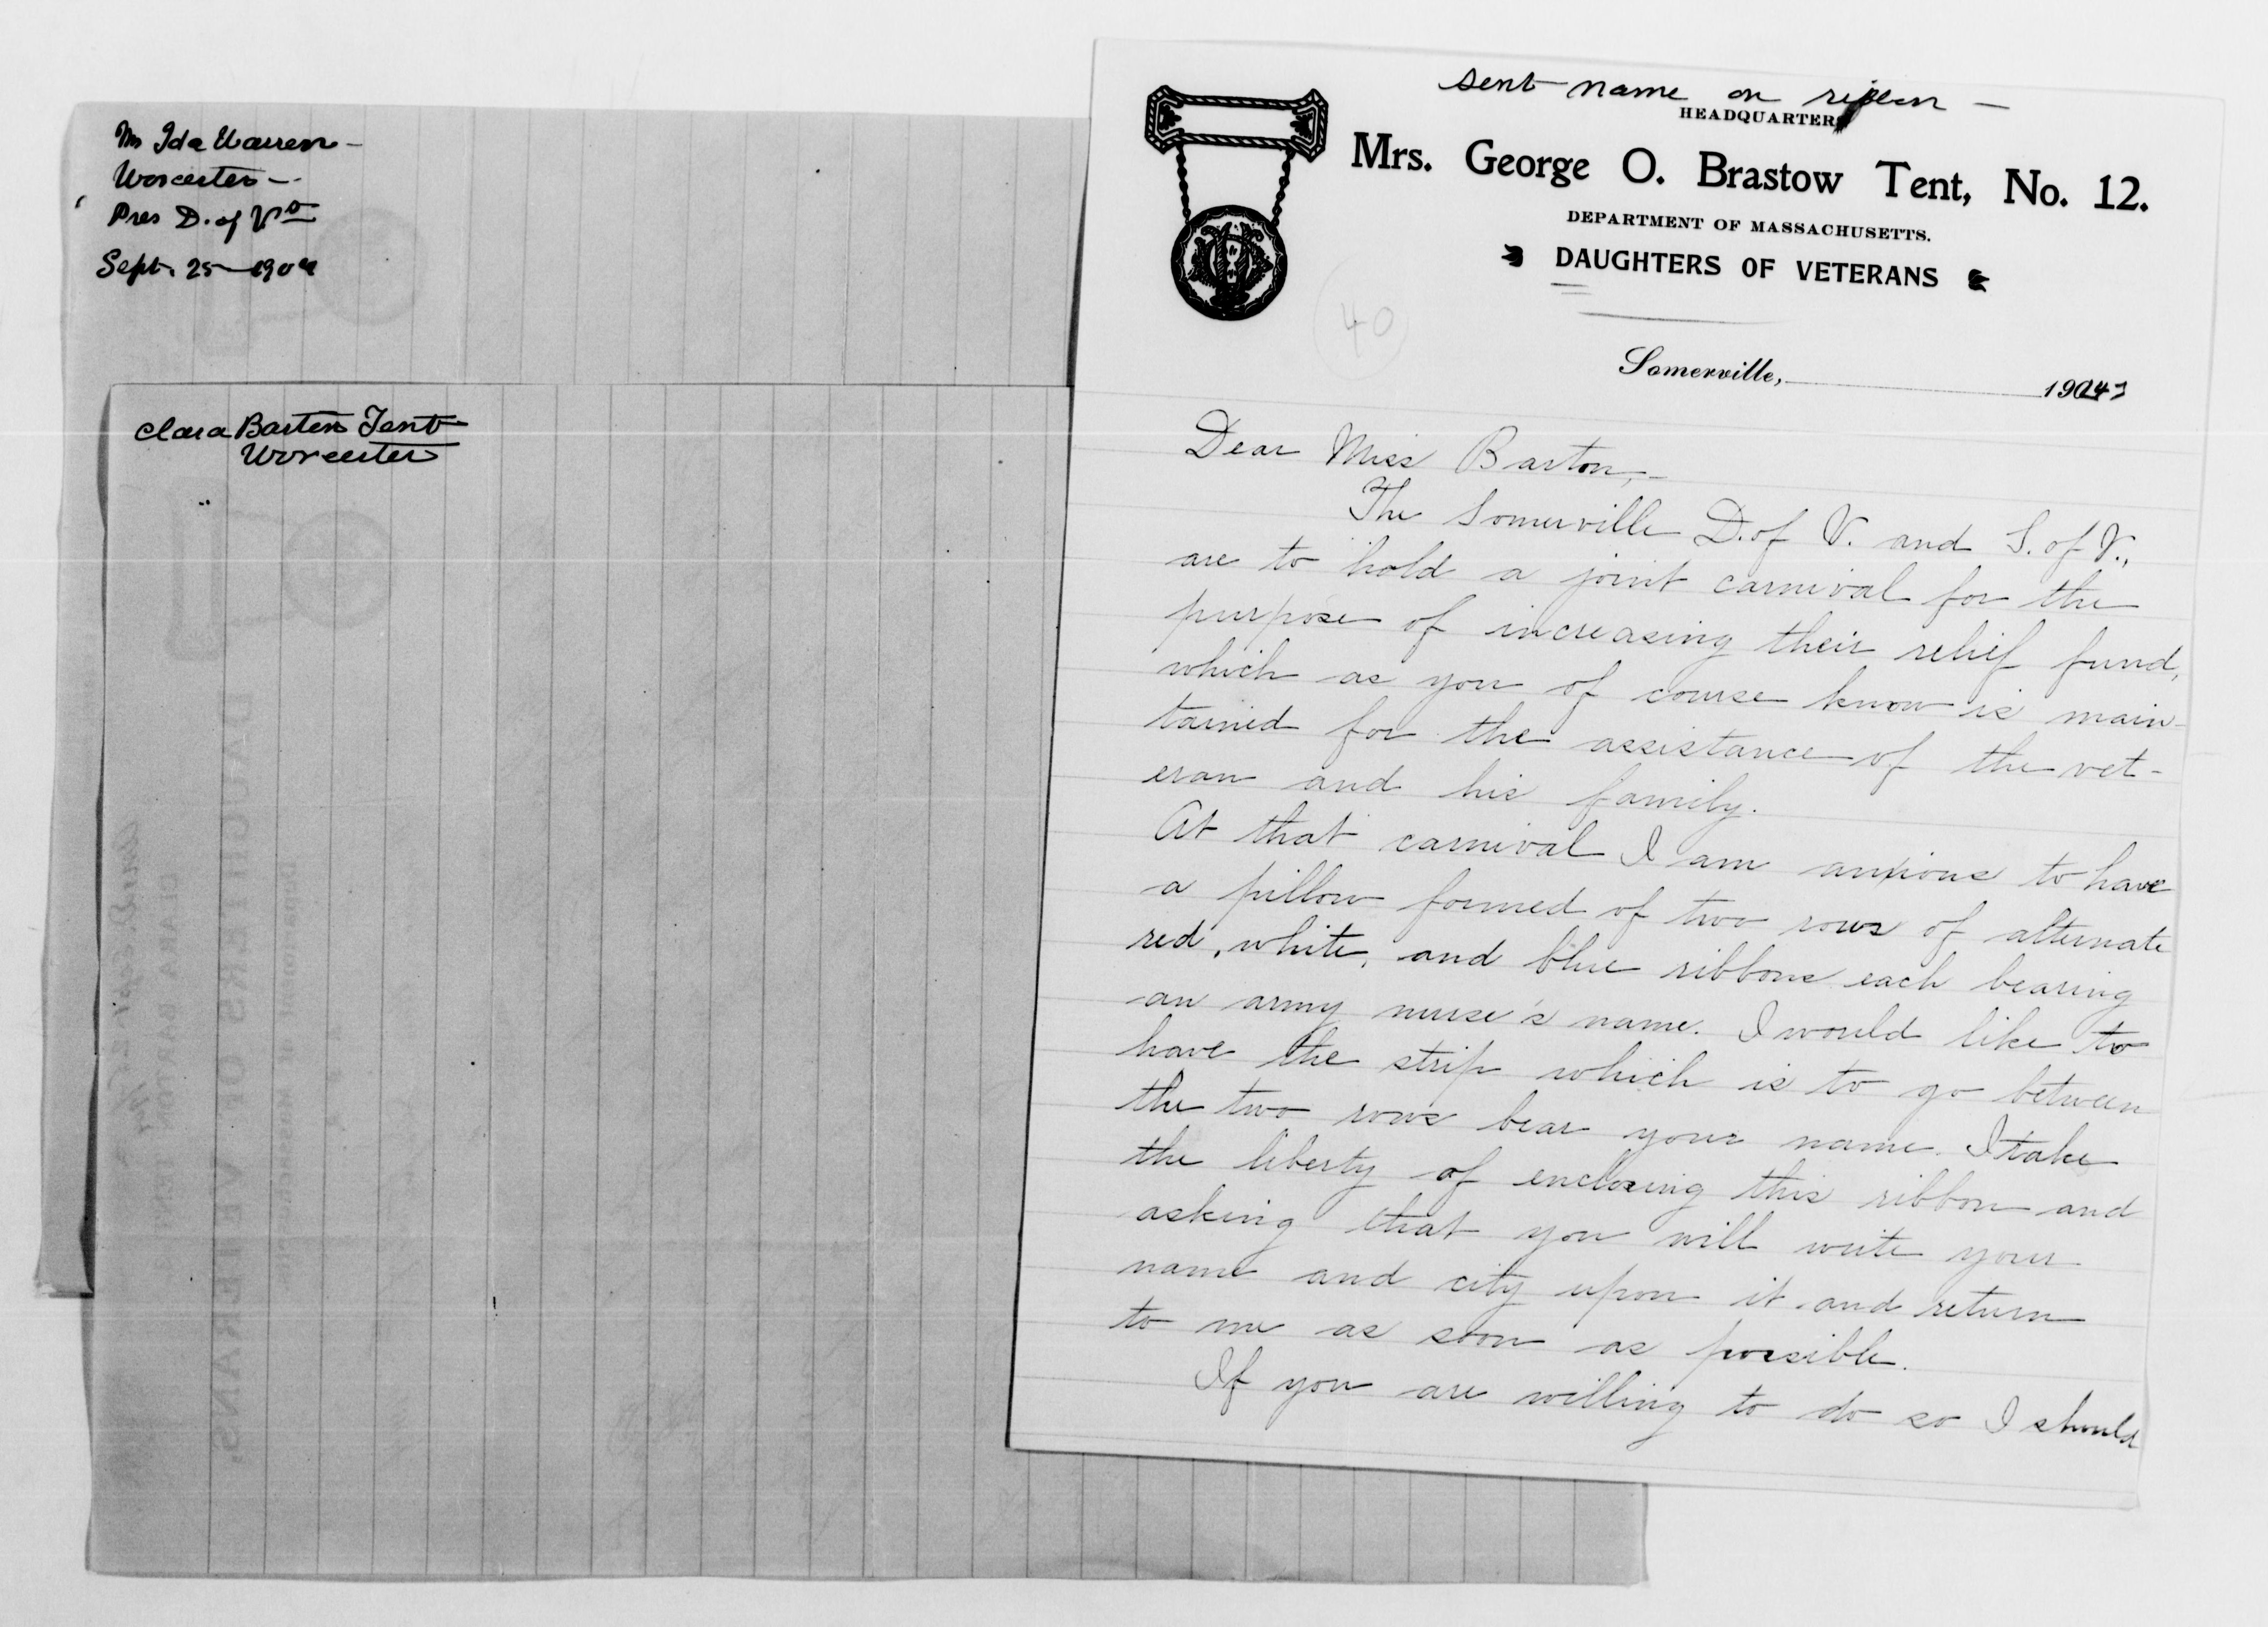 Mrs Ida Warren -
Worcester -
Pres D. of Vs
Sept. 25 - 1904
Clara Barton Tent
Worcester
sent name on ribbon -
HEADQUARTERS
Mrs. George O. Brastow Tent, No. 12.
DEPARTMENT OF MASSACHUSETTS.
DAUGHTERS OF VETERANS
40
Somerville, 1904
Dear Miss Barton,-
The Somerville D. of V. and S. of V.,
are to hold a joint carnival for the
purpose of increasing their relief fund,
which as you of course know is main-
tained for the assistance of the vet-
eran and his family.
At that carnival I am anxious to have
a pillow formed of two rows of alternate
red, white, and blue ribbons each bearing
an army nurse's name. I would like to
have the strip which is to go between
the two rows bear your name. I take
the liberty of enclosing this ribbon and
asking that you will write your
name and city upon it and return
to me as soon as possible.
If you are willing to do so I should